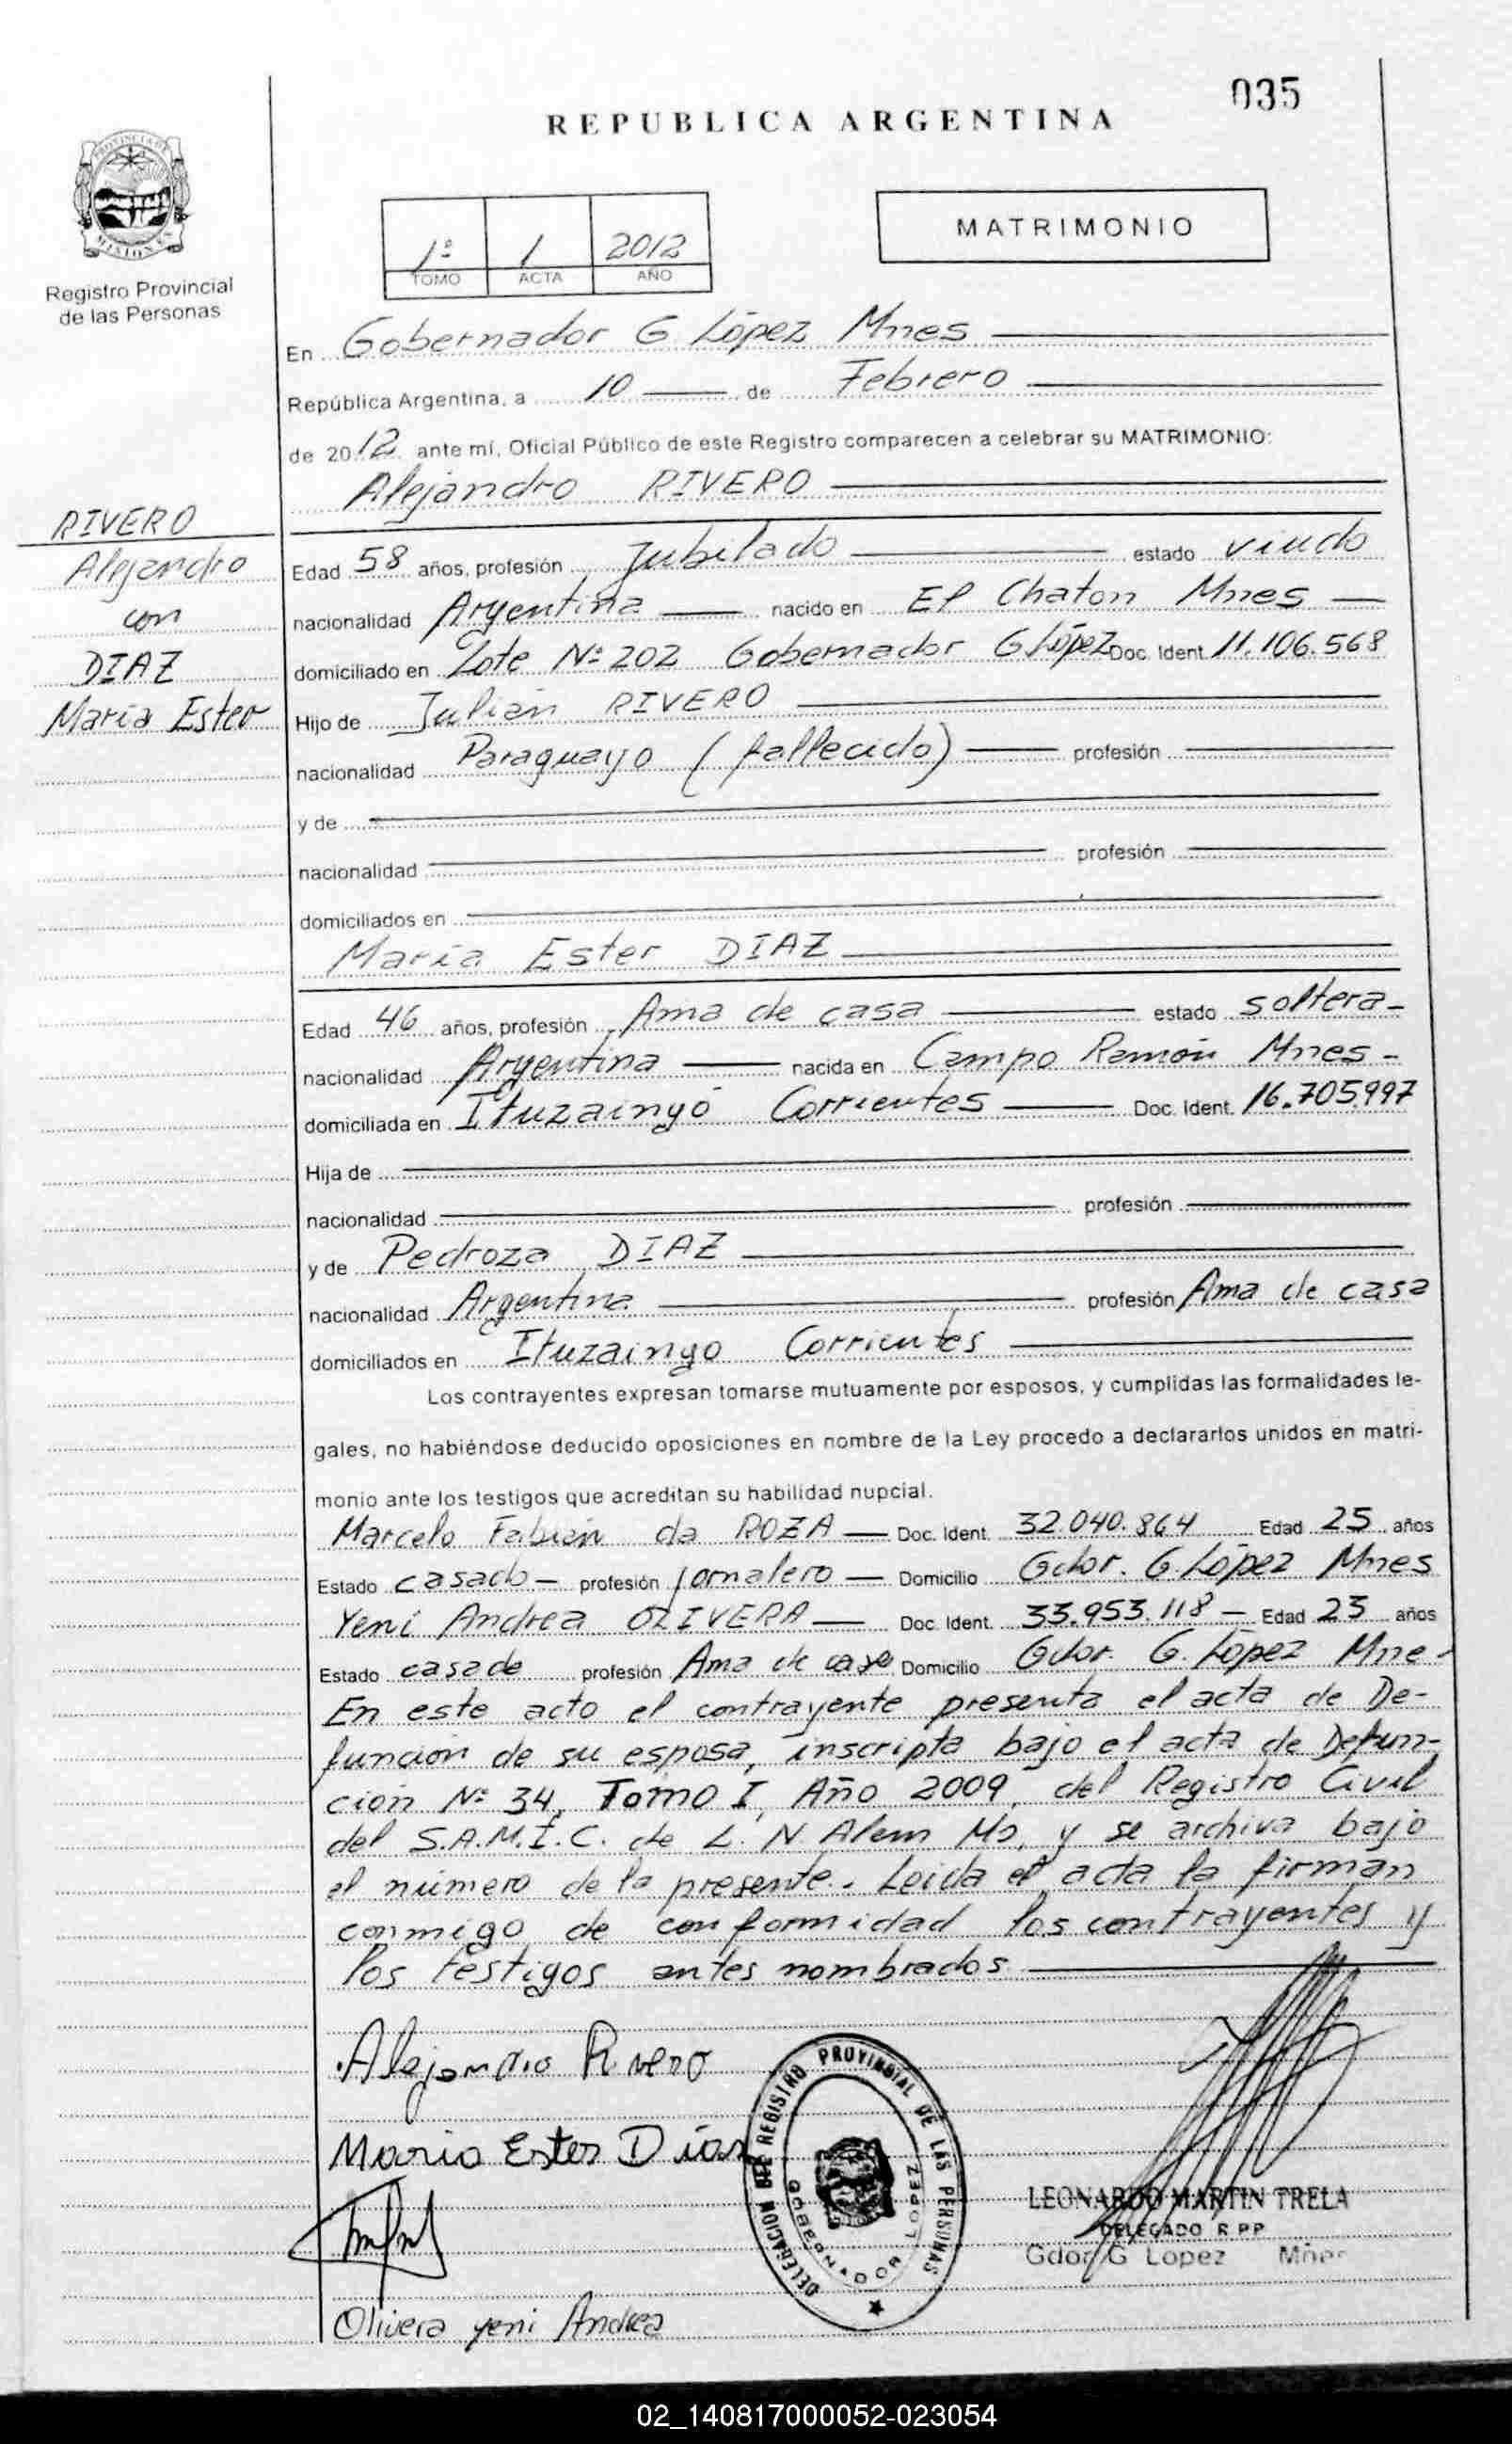 035
REPUBLICA ARGENTINA
PROVINCIA DE MISIONES
Registro Provincial
de las Personas
1º 1 2012
TOMO ACTA AÑO
MATRIMONIO
En Gobernador G López Mnes
República Argentina, a 10 de Febrero
de 2012 ante mí, Oficial Público de este Registro comparecen a celebrar su MATRIMONIO:
Alejandro RIVERO
RIVERO
Alejandro
con
DIAZ
María Ester
Edad 58 años, profesión Jubilado estado viudo
nacionalidad Argentina nacido en El Chaton Mnes
domiciliado en Lote Nº 202 Gobernador G López Doc. Ident. 11.106.568
Hijo de Julián RIVERO
nacionalidad Paraguayo (fallecido) profesión
y de
nacionalidad profesión
domiciliados en
María Ester DIAZ
Edad 46 años, profesión Ama de casa estado soltera
nacionalidad Argentina nacida en Campo Ramón Mnes
domiciliada en Ituzaingó Corrientes Doc. Ident. 16.705.997
Hija de
nacionalidad profesión
y de Pedroza DIAZ
nacionalidad Argentina profesión Ama de casa
domiciliados en Ituzaingo Corrientes
Los contrayentes expresan tomarse mutuamente por esposos, y cumplidas las formalidades le-
gales, no habiéndose deducido oposiciones en nombre de la Ley procedo a declararlos unidos en matri-
monio ante los testigos que acreditan su habilidad nupcial.
Marcelo Fabián da ROZA Doc. Ident. 32.040.864 Edad 25 años
Estado casado profesión jornalero Domicilio Gdor. G. López Mnes
Yeni Andrea OLIVERA Doc. Ident. 33.953.118 Edad 23 años
Estado casada profesión Ama de casa Domicilio Gdor. G. López Mne
En este acto el contrayente presenta el acta de De-
función de su esposa, inscripta bajo el acta de Defun-
ción Nº 34, Tomo I, Año 2009, del Registro Civil
del S.A.M.I.C. de L. N. Alem Ms, y se archiva bajo
el número de la presente. Leida el acta la firman
conmigo de conformidad los contrayentes y
los testigos antes nombrados
Alejandro Rivero
Maria Ester Diaz
DELEGACION DEL REGISTRO PROVINCIAL DE LAS PERSONAS
GOBERNADOR LOPEZ
LEONARDO MARTIN TRELA
DELEGADO R.P.P.
Gdor G Lopez Mnes
Olivera yeni Andrea
02_140817000052-023054